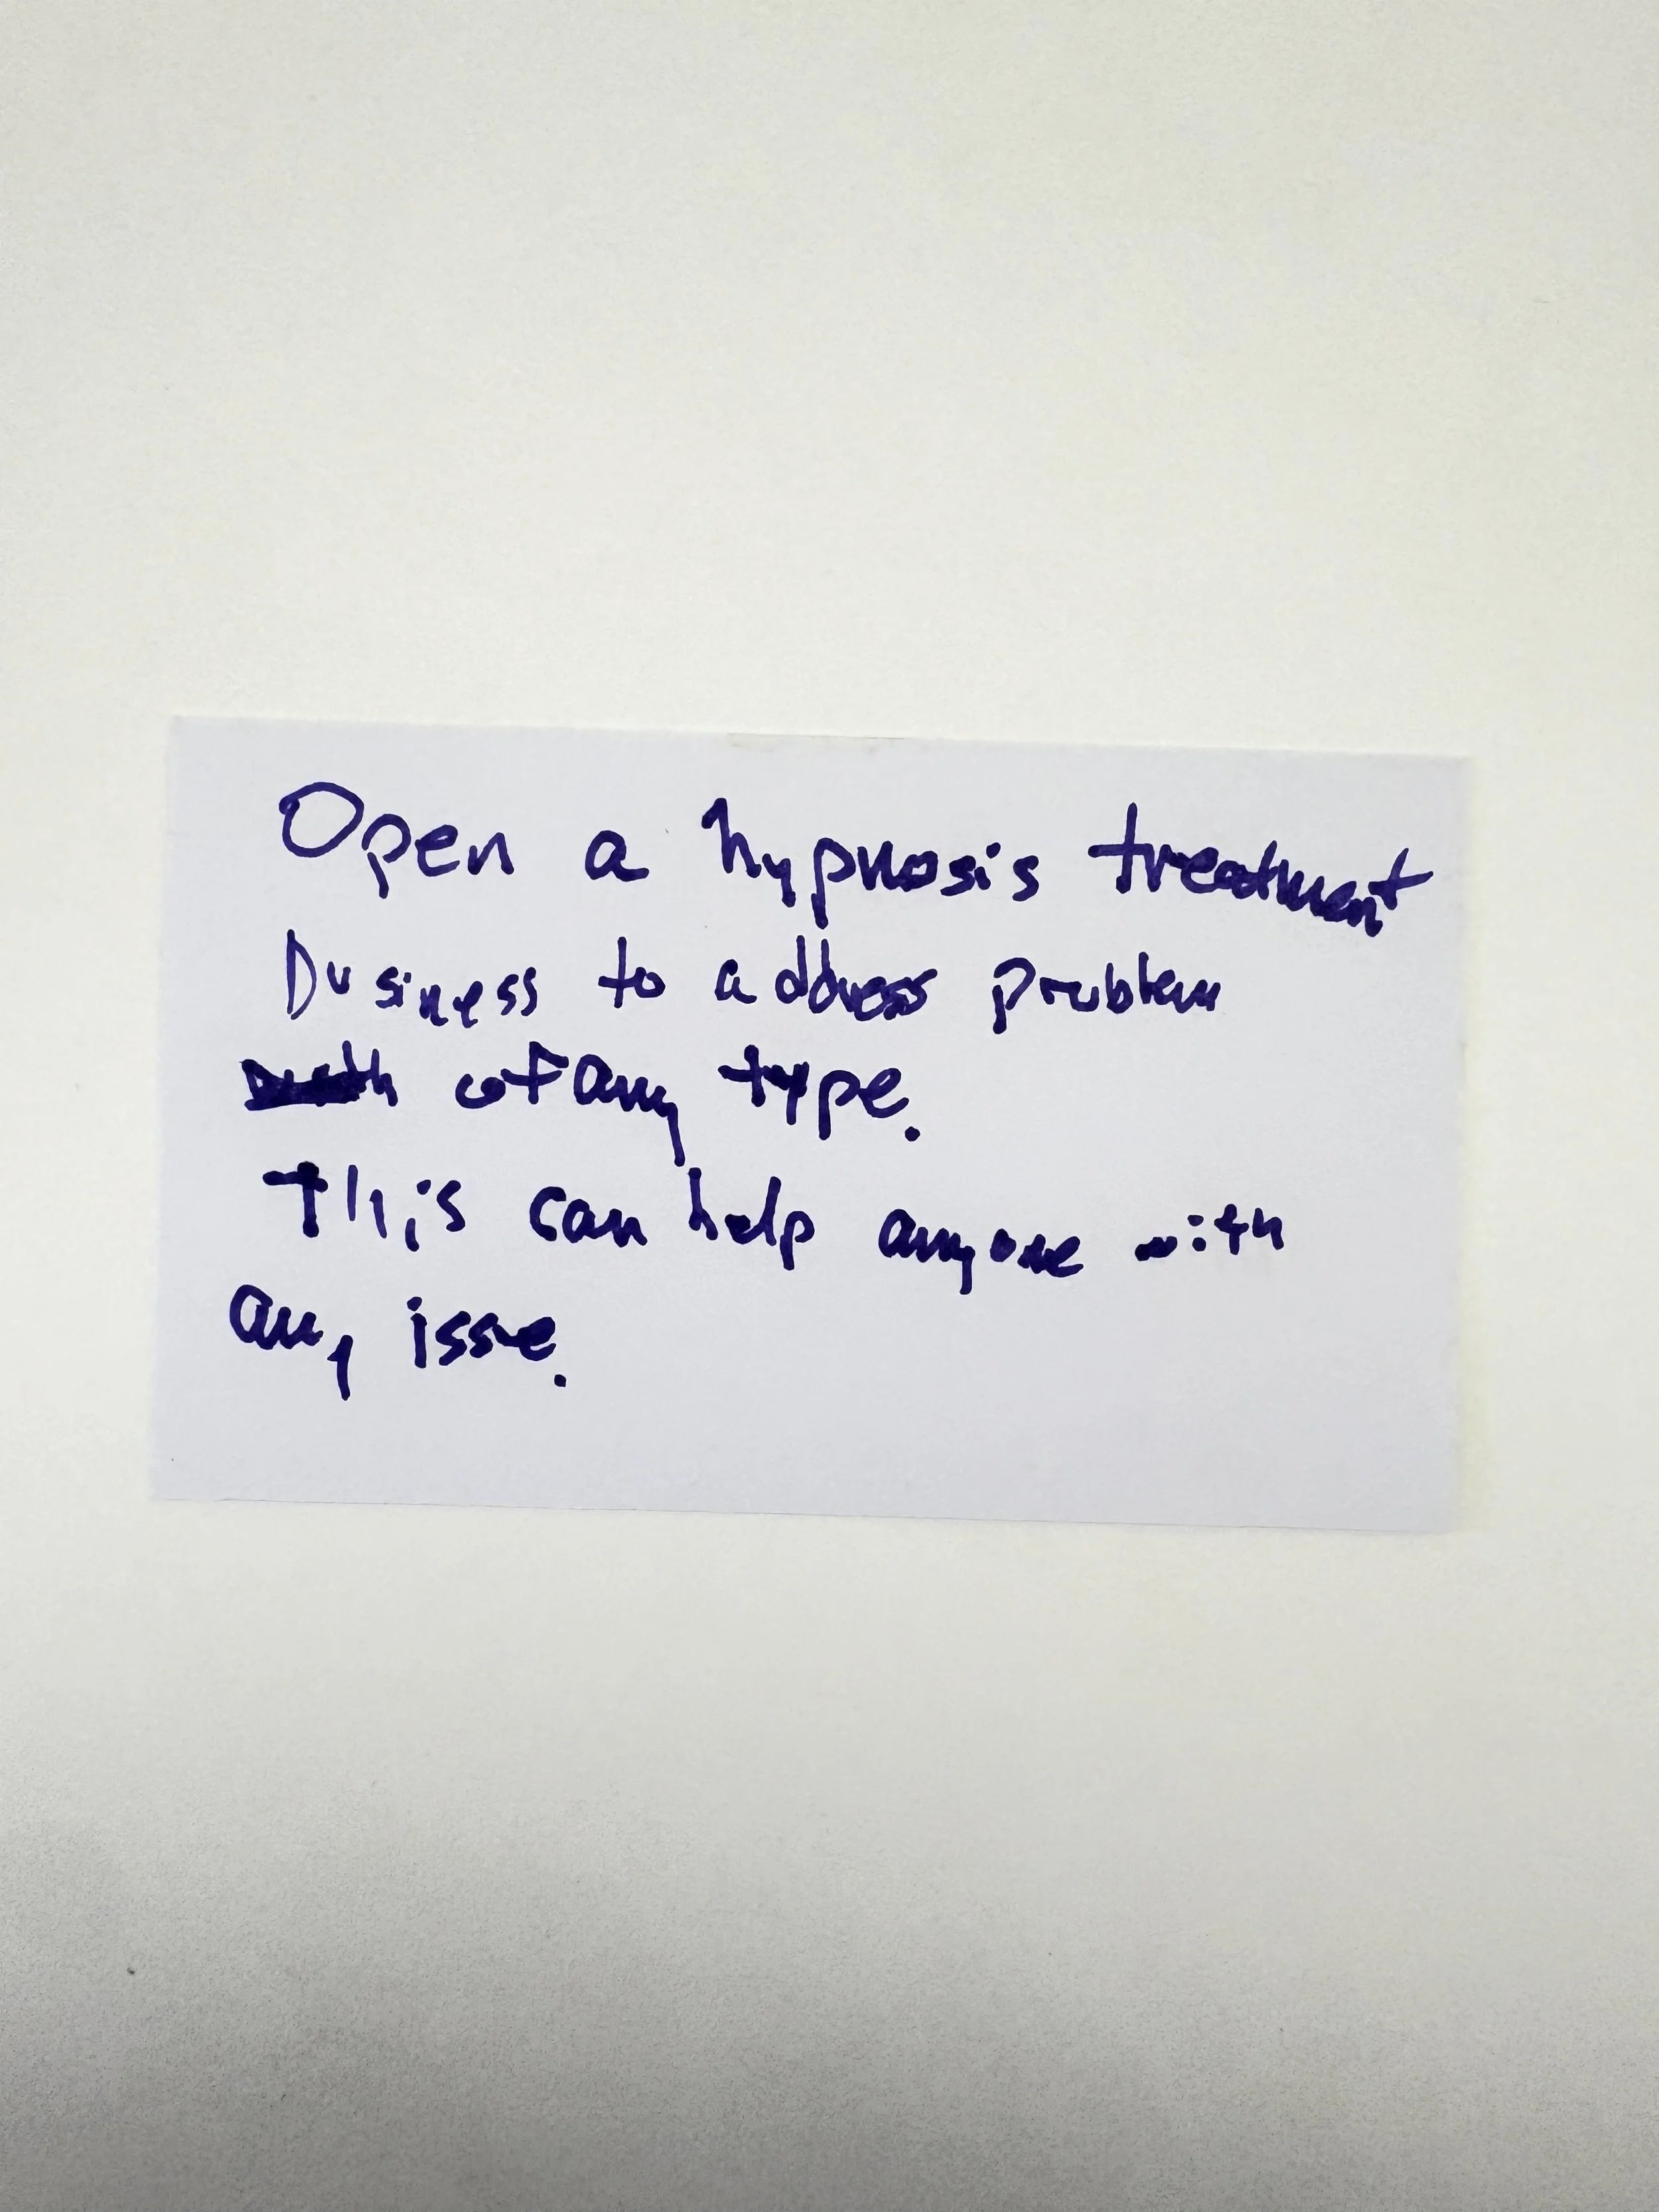 Open a hypnosis treatment
Business to address problem
of any type.
This can help anyone with
any issue.